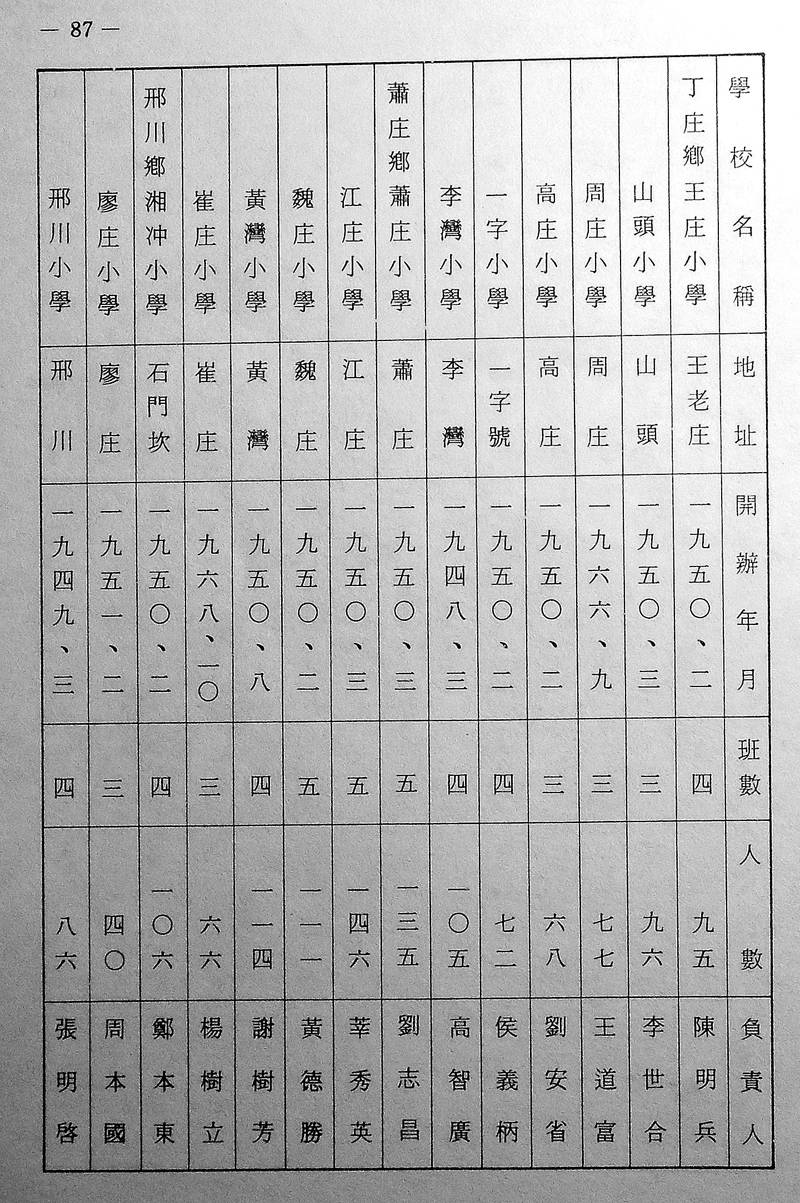 — 87 —
學校名稱 地址 開辦年月 班數 人數 負責人
丁庄鄉王庄小學 王老庄 一九五〇、二 四 九五 陳明兵
山頭小學 山頭 一九五〇、三 三 九六 李世合
周庄小學 周庄 一九六六、九 三 七七 王道富
高庄小學 高庄 一九五〇、二 三 六八 劉安省
一字小學 一字號 一九五〇、二 四 七二 侯義柄
李灣小學 李灣 一九四八、三 四 一〇五 高智廣
蕭庄鄉蕭庄小學 蕭庄 一九五〇、三 五 一三五 劉志昌
江庄小學 江庄 一九五〇、三 五 一四六 莘秀英
魏庄小學 魏庄 一九五〇、二 五 一一一 黃德勝
黃灣小學 黃灣 一九五〇、八 四 一一四 謝樹芳
崔庄小學 崔庄 一九六八、一〇 三 六六 楊樹立
邢川鄉湘冲小學 石門坎 一九五〇、二 四 一〇六 鄭本東
廖庄小學 廖庄 一九五一、二 三 四〇 周本國
邢川小學 邢川 一九四九、三 四 八六 張明啓